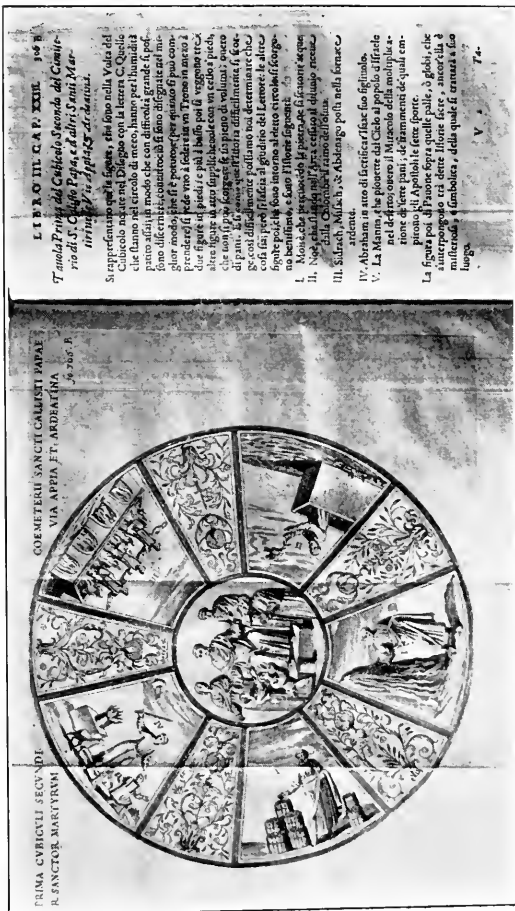 PRIMA CVBICVLI SECVNDI COEMETERII SANCTI CALLISTI PAPAE
R. SANCTOR MARTYRVM VIA APPIA ET ARDEATINA
fo 306. B.
LIBRO III. CAP. XXIII. 306 B
Tauola Prima del Cubicolo Secondo del Cimite-
rio di S. Callisto Papa, e d'altri Santi Mar-
tiri nelle Vie Appia, & Ardeatina.
Si rappresentano quì le figure, che sono nella Volta del
Cubicolo notate nel Disegno con la lettera C. Quelle
che stanno nel circolo di mezzo, hanno per l'humidità
patito assai; in modo che con difficoltà grande si pos-
sono discernere; contuttociò si sono disegnate nel mi-
glior modo, che si è potuto; e per quanto si può com-
prendere, si vede vno à sedere in vn Trono in mezo à
due figure in piedi; e più à basso poi si veggono tre
altre figure in atto supplicheuole con vn cesto à piedi,
che non si può scorgere se sia pieno di volumi; ouero
di pani. E sì come quest'Istoria difficilmente si scor-
ge, così difficilmente possiamo noi determinare che
cosa sia; però si lascia al giuditio del Lettore: le altre
figure poi, che sono intorno al detto circolo, si scorgo-
no benissimo, e sono l'Istorie seguenti.
I. Moisè, che percuotendo la pietra, ne fà scaturir acque;
II. Noè, che stando nell'Arca, cessato il diluuio, riceue
dalla Colomba il ramo dell'oliua.
III. Sidrach, Misach, & Abdenago posti nella fornace
ardente.
IV. Abraham in atto di sacrificar Isaac suo figliuolo.
V. La Manna, che piouette dal Cielo al popolo d'Israele
nel deserto; ouero il Miracolo della moltiplica-
zione de' sette pani; de' frammenti de' quali em-
pirono gli Apostoli le sette sporte.
La figura poi di Pauone sopra quelle palle, ò globi, che
s'interpongono trà dette Istorie sacre, ancor'essa è
misteriosa, e simbolica, della quale si tratterà à suo
luogo.
V v 2 Ta-